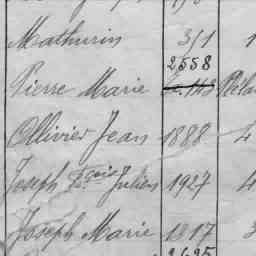 Mathurin 351 1
2558
Pierre Marie
Ollivier Jean 1888 4
Joseph Fçois Julien 1927 4
Joseph Marie 1817 3
2695